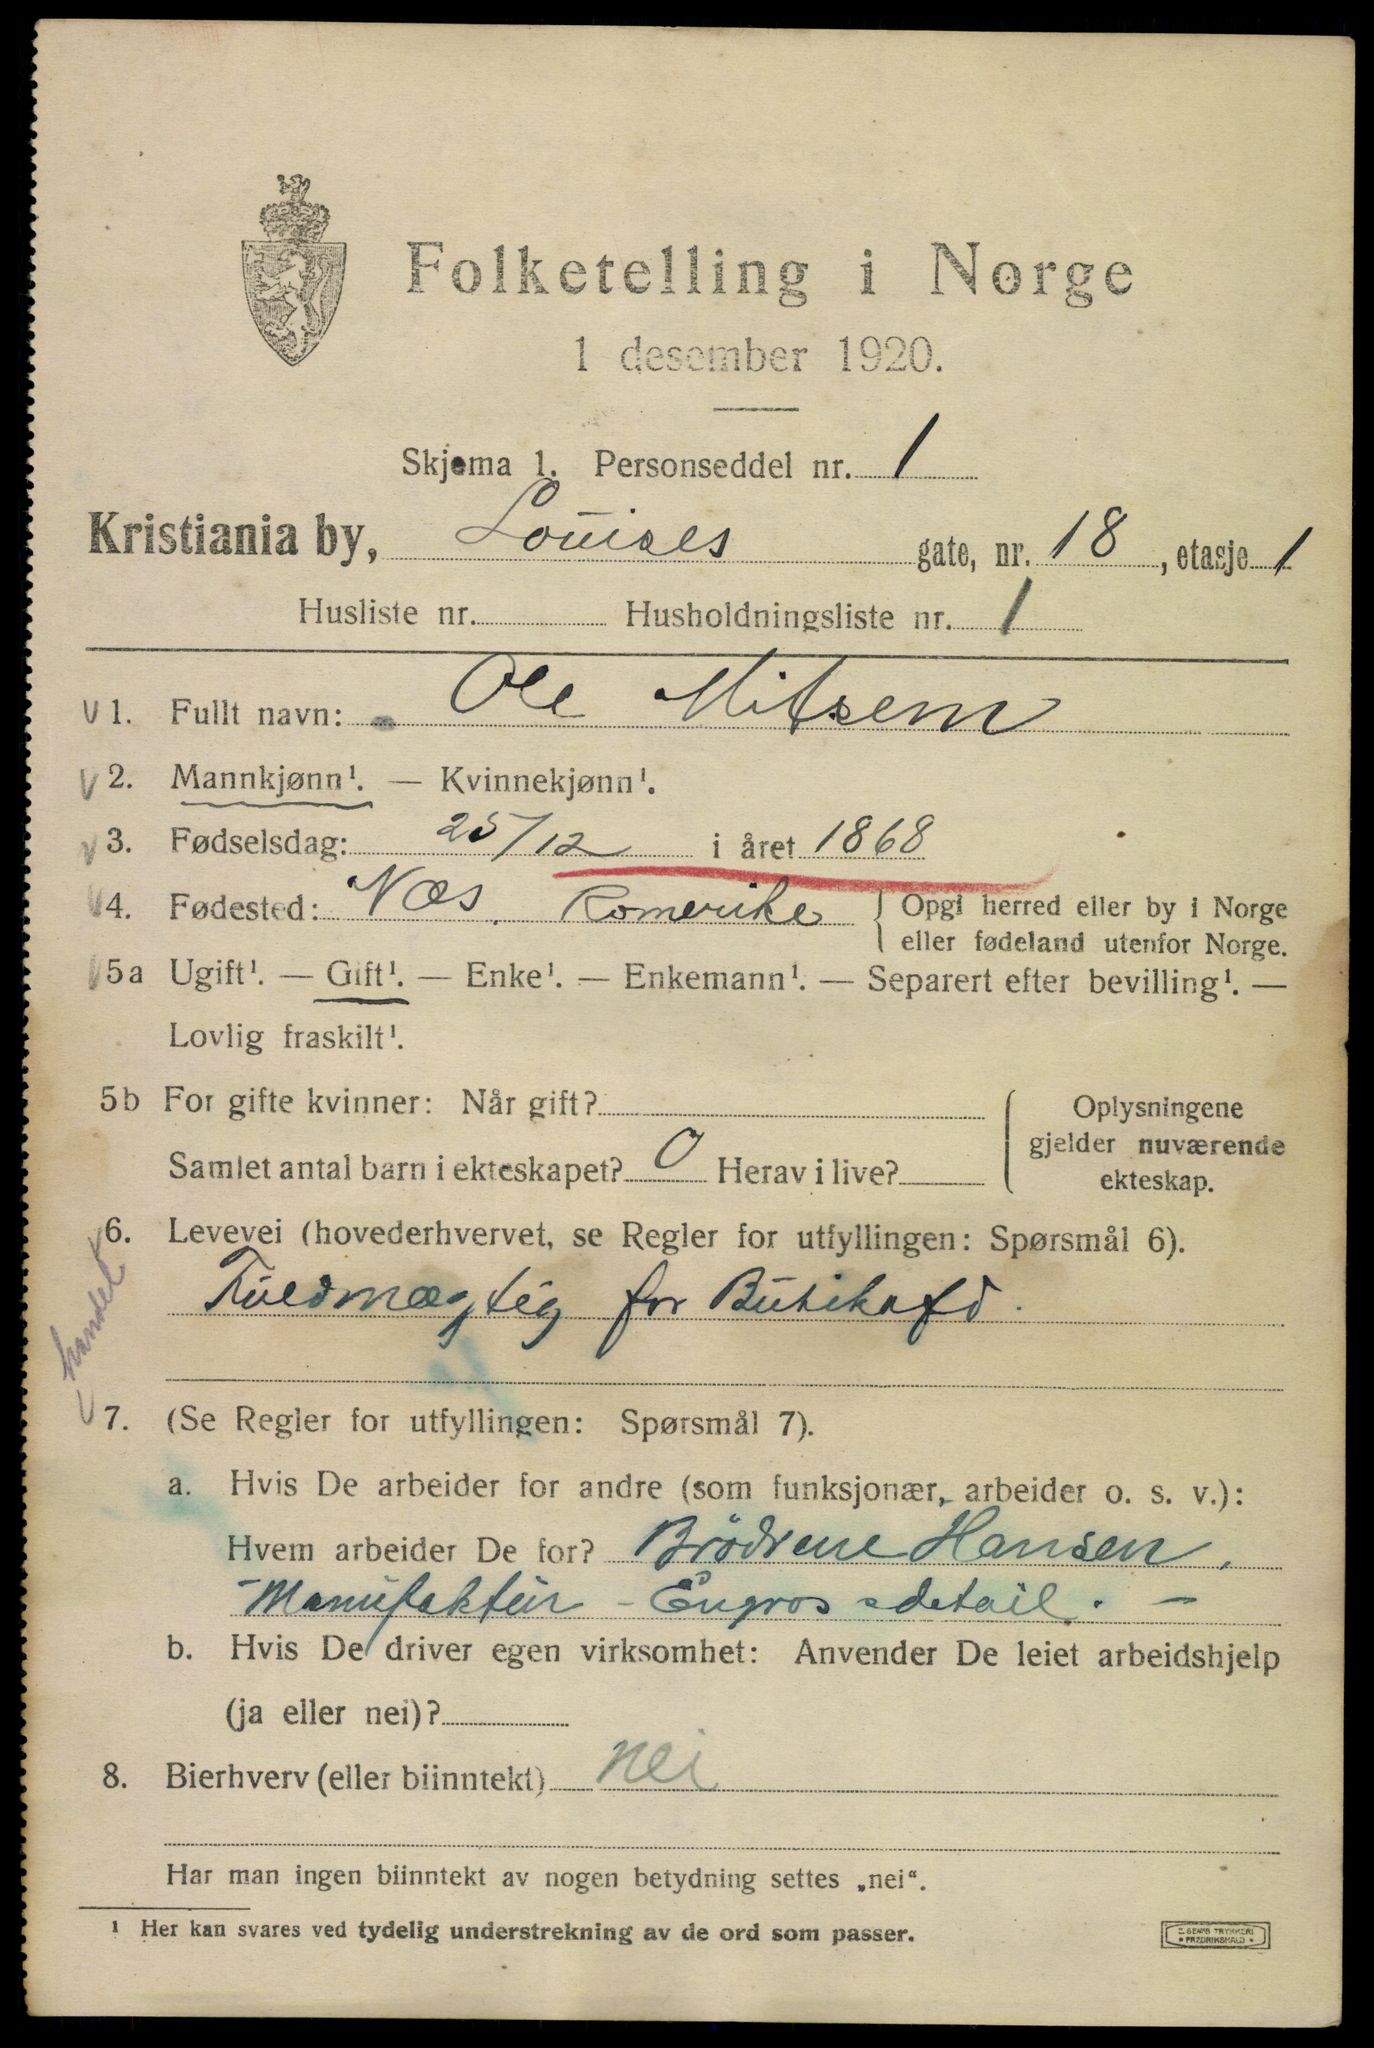 Folketelling i Norge
1 desember 1920.
Skjema 1. Personseddel nr. 1
Kristiania by, Louises gate, nr. 18, etasje 1
Husliste nr. Husholdningsliste nr. 1
V 1. Fullt navn: Ole Mitsem
V 2. Mannkjønn¹. — Kvinnekjønn¹.
V 3. Fødselsdag: 25/12 i året 1868
V 4. Fødested: Næs, Romerike { Opgi herred eller by i Norge
eller fødeland utenfor Norge.
V 5a Ugift¹. — Gift¹. — Enke¹. — Enkemann¹. — Separert efter bevilling¹. —
Lovlig fraskilt¹.
5b For gifte kvinner: Når gift? { Oplysningene
gjelder nuværende
ekteskap.
Samlet antal barn i ekteskapet? 0 Herav i live?
V 6. Levevei (hovederhvervet, se Regler for utfyllingen: Spørsmål 6).
Fuldmægtig for Butikafd.
handel
V 7. (Se Regler for utfyllingen: Spørsmål 7).
a. Hvis De arbeider for andre (som funksjonær, arbeider o. s. v.):
Hvem arbeider De for? Brödrene Hansen,
Manufaktur - Engros & detail. -
b. Hvis De driver egen virksomhet: Anvender De leiet arbeidshjelp
(ja eller nei)?
8. Bierhverv (eller biinntekt) nei
Har man ingen biinntekt av nogen betydning settes „nei“.
¹ Her kan svares ved tydelig understrekning av de ord som passer.
TRYKKERI
FREDRIKSHALD